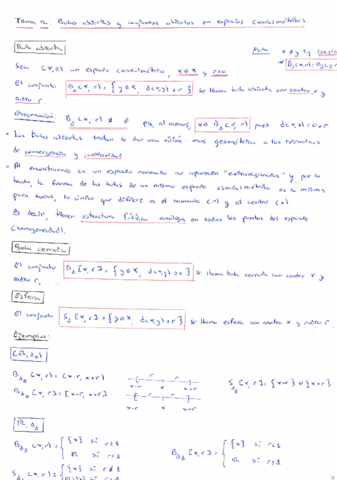 Tema 2. Bolas abiertas y conjuntos abiertos en espacios (cuasi)métricos
Bola abierta
Nota x ≠ y
Sea (X,d) un espacio (cuasi)métrico, x∈X y r>0
El conjunto B_d(x,r) = {y∈X, d(x,y)<r} se llama bola abierta con centro x y
radio r.
Observación: B_d(x,r) ≠ ∅ pq, al menos, x∈B_d(x,r) pues d(x,x)=0<r
• Las bolas abiertas tratan de dar una visión más geométrica a los términos
de convergencia y
• Al encontrarnos en un espacio normado no aparecen "extravagancias" y, por lo
tanto, la forma de las bolas de un mismo espacio (cuasi)métrico es la misma
para todas, lo único que difiere es el tamaño (r) y el centro (x).
Es decir, tienen estructura análoga en todos los puntos del espacio
(homogeneidad).
Bola cerrada
El conjunto B_d[x,r] = {y∈X, d(x,y)≤r} se llama bola cerrada con centro x y
radio r.
Esfera
El conjunto S_d[x,r] = {y∈X, d(x,y)=r} se llama esfera con centro x y radio r.
Ejemplos:
B(x,r) = (x-r, x+r)
x-r x x+r
S[x,r] = {x-r} ∪ {x+r}
B[x,r] = [x-r, x+r]
x-r x x+r
B(x,r) = { {x} si r≤1
si r>1
B[x,r] = { {x} si r<1
si r≥1